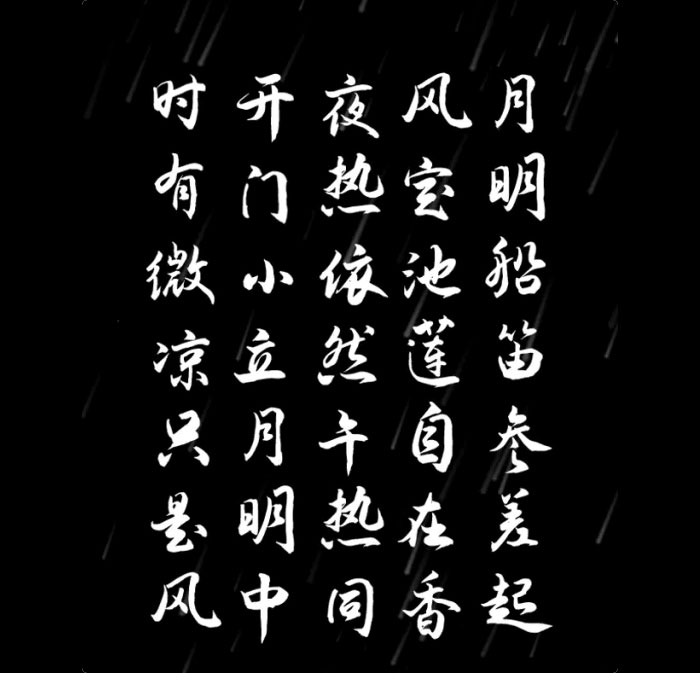 月明船笛参差起
风定池莲自在香
夜热依然午热同
开门小立月明中
时有微凉只是风